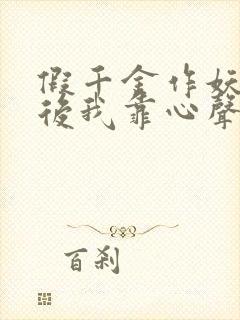 假千金作妖
後我靠心聲
百剎